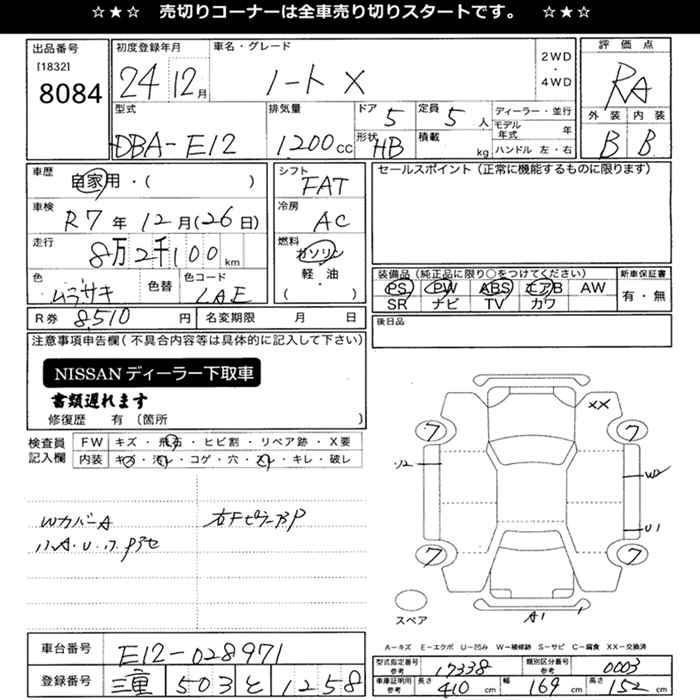 ☆★☆ 売切りコーナーは全車売り切りスタートです。 ☆★☆
出品番号
[1832]
8084
初度登録年月
24 12月
車名・グレード
ノート X
2WD
・
4WD
評価点
RA
外装 内装
B B
型式
DBA-E12
排気量
1200cc
ドア 5
形状 HB
定員 5人
積載 kg
ディーラー・並行
モデル年式 年
ハンドル 左・右
車歴
自家用・( )
車検
R7年12月(26日)
走行
8万2千100km
色
ムラサキ
色替
色コード
LAE
シフト
FAT
冷房
AC
燃料
ガソリン
軽・油
( )
セールスポイント(正常に機能するものに限ります)
装備品(純正品に限り○をつけてください)
PS PW ABS エアB AW
SR ナビ TV カワ
新車保証書
有・無
R券 8510円
名変期限 月 日
後日品
注意事項申告欄(不具合内容等は具体的に記入して下さい)
NISSANディーラー下取車
書類遅れます
修復歴 有 〔箇所 〕
検査員記入欄
FW キズ・飛石・ヒビ割・リペア跡・X要
内装 キズ・汚レ・コゲ・穴・スレ・キレ・破レ
WカバーA
右FピラーアP
XX
7 7
W2
U1
7 7
A1
スペア
A-キズ E-エクボ U-凹み W-補修跡 S-サビ C-腐食 XX-交換済
車台番号 E12-028971
登録番号 三重 503 と 1258
型式指定番号 参考 17338
類別区分番号 参考 0003
車庫証明用 参考 長さ 410cm 幅 169cm 高さ 152cm